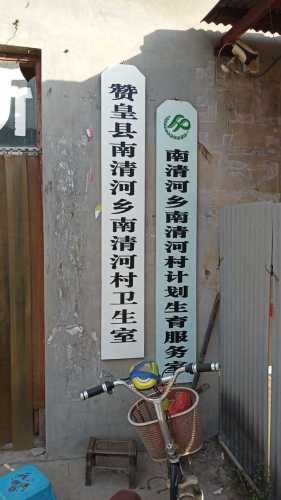 赞皇县南清河乡南清河村卫生室
南清河乡南清河村计划生育服务室